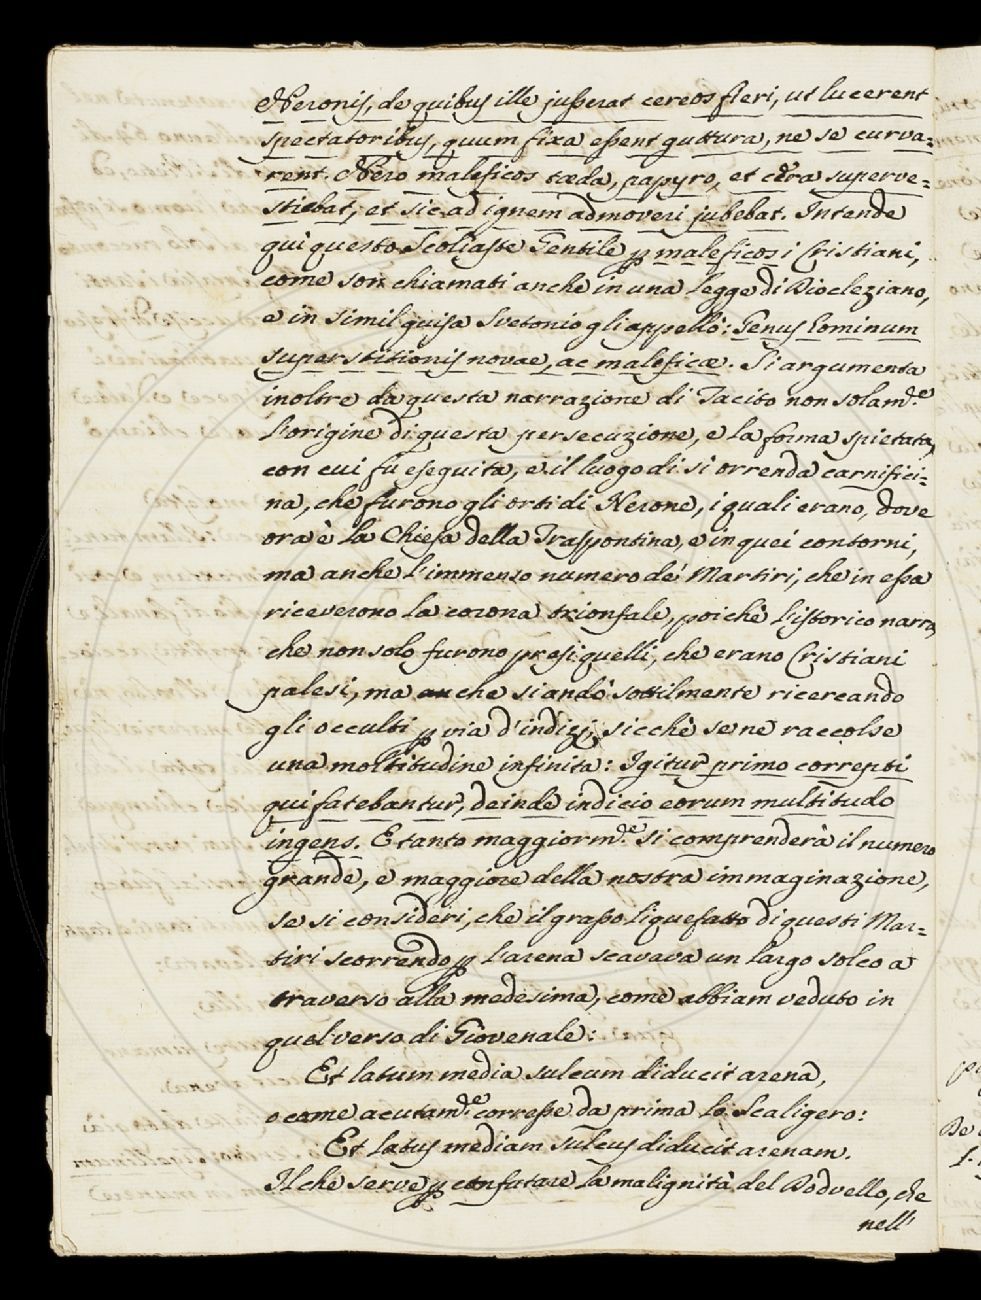 Neronis, de quibus ille jusserat cereos fieri, ut lucerent
spectatoribus, quum fixa essent guttura, ne se curva=
rent. Nero maleficos tæda, papyro, et cera superve=
stiebat, et sic ad ignem admoveri jubebat. Intende
quì questo Scoliaste Gentile p maleficos i Cristiani,
come son chiamati anche in una legge di Diocleziano,
e in simil guisa Svetonio gli appellò: Genus hominum
superstitionis novae, ac maleficæ. Si argumenta
inoltre da questa narrazione di Tacito non solam.de
l'origine di questa persecuzione, e la forma spietata,
con cui fu eseguita, e il luogo di sì orrenda carnifici=
na, che furono gli orti di Nerone, i quali erano, dove
ora è la Chiesa della Traspontina, e in quei contorni,
ma anche l'immenso numero de' Martiri, che in essa
riceverono la corona trionfale, poichè l'istorico narra,
che non solo furono presi quelli, che erano Cristiani
palesi, ma che si andò sottilmente ricercando
gli occulti p via d'indizj, sicchè se ne raccolse
una moltitudine infinita: Igitur primo correpti
qui fatebantur, deinde indicio eorum multitudo
ingens. E tanto maggiorm.de si comprenderà il numero
grande, e maggiore della nostra immaginazione,
se si consideri, che il grasso liquefatto di questi Mar=
tiri scorrendo p l'arena scavava un largo solco a
traverso alla medesima, come abbiam veduto in
quel verso di Giovenale:
Et latum media sulcum diducit arena,
o come acutam.de corresse da prima lo Scaligero:
Et latus mediam sulcus diducit arenam.
Il che serve p confutare la malignità del Dodvello, che
nell'